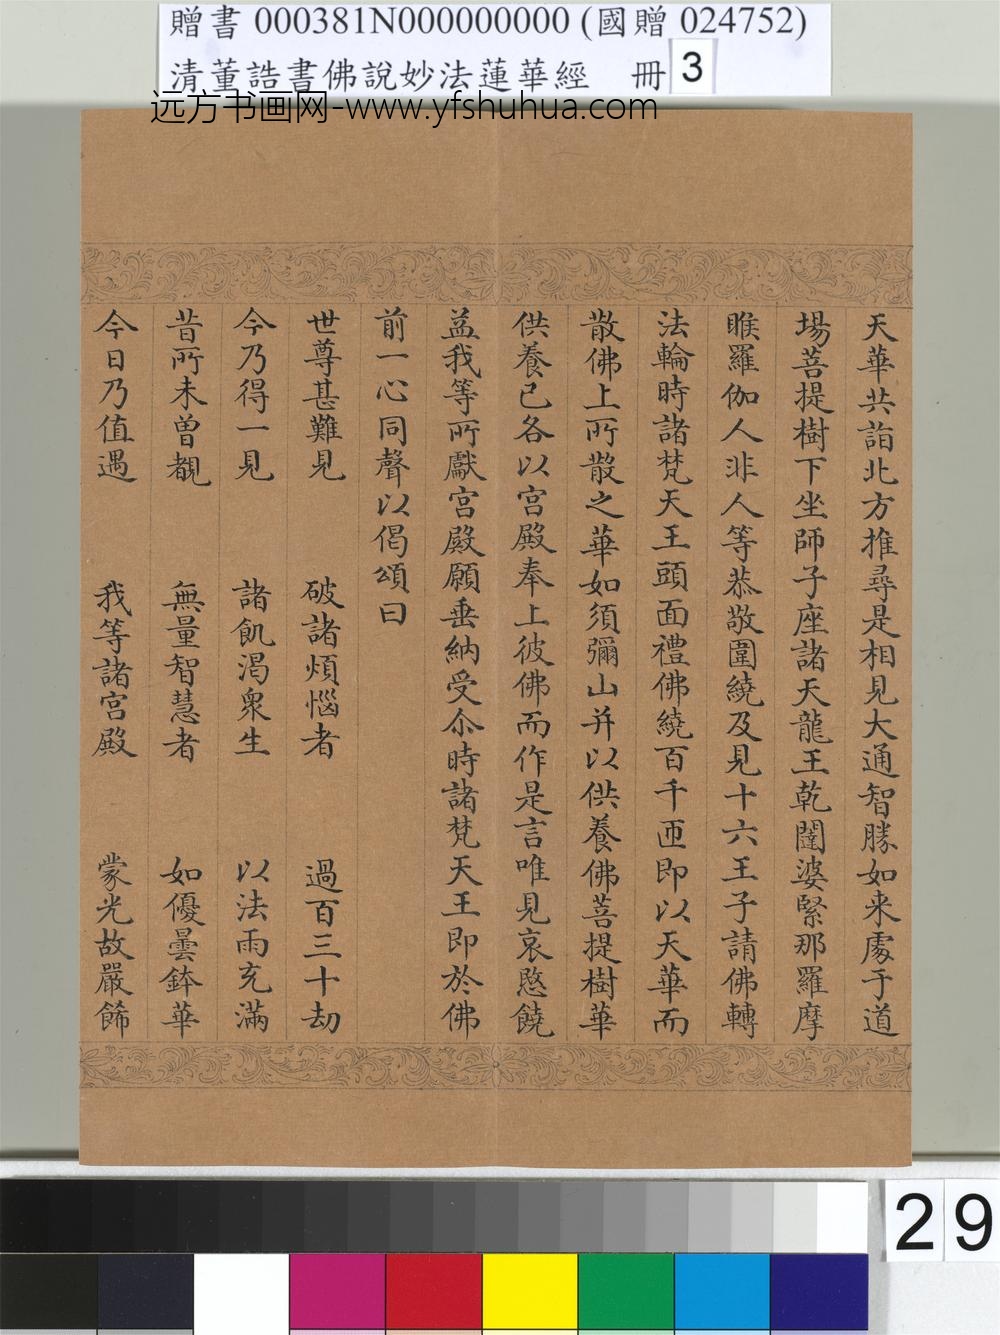 贈書 000381N000000000 (國贈 024752)
清董誥書佛說妙法蓮華經 冊 3
远方书画网-www.yfshuhua.com
天華共詣北方推尋是相見大通智勝如来處于道
場菩提樹下坐師子座諸天龍王乾闥婆緊那羅摩
睺羅伽人非人等恭敬圍繞及見十六王子請佛轉
法輪時諸梵天王頭面禮佛繞百千匝即以天華而
散佛上所散之華如須彌山并以供養佛菩提樹華
供養已各以宮殿奉上彼佛而作是言唯見哀愍饒
益我等所獻宮殿願垂納受尒時諸梵天王即於佛
前一心同聲以偈頌曰
世尊甚難見 破諸煩惱者 過百三十劫
今乃得一見 諸飢渴衆生 以法雨充滿
昔所未曾覩 無量智慧者 如優曇鉢華
今日乃值遇 我等諸宮殿 蒙光故嚴飾
29